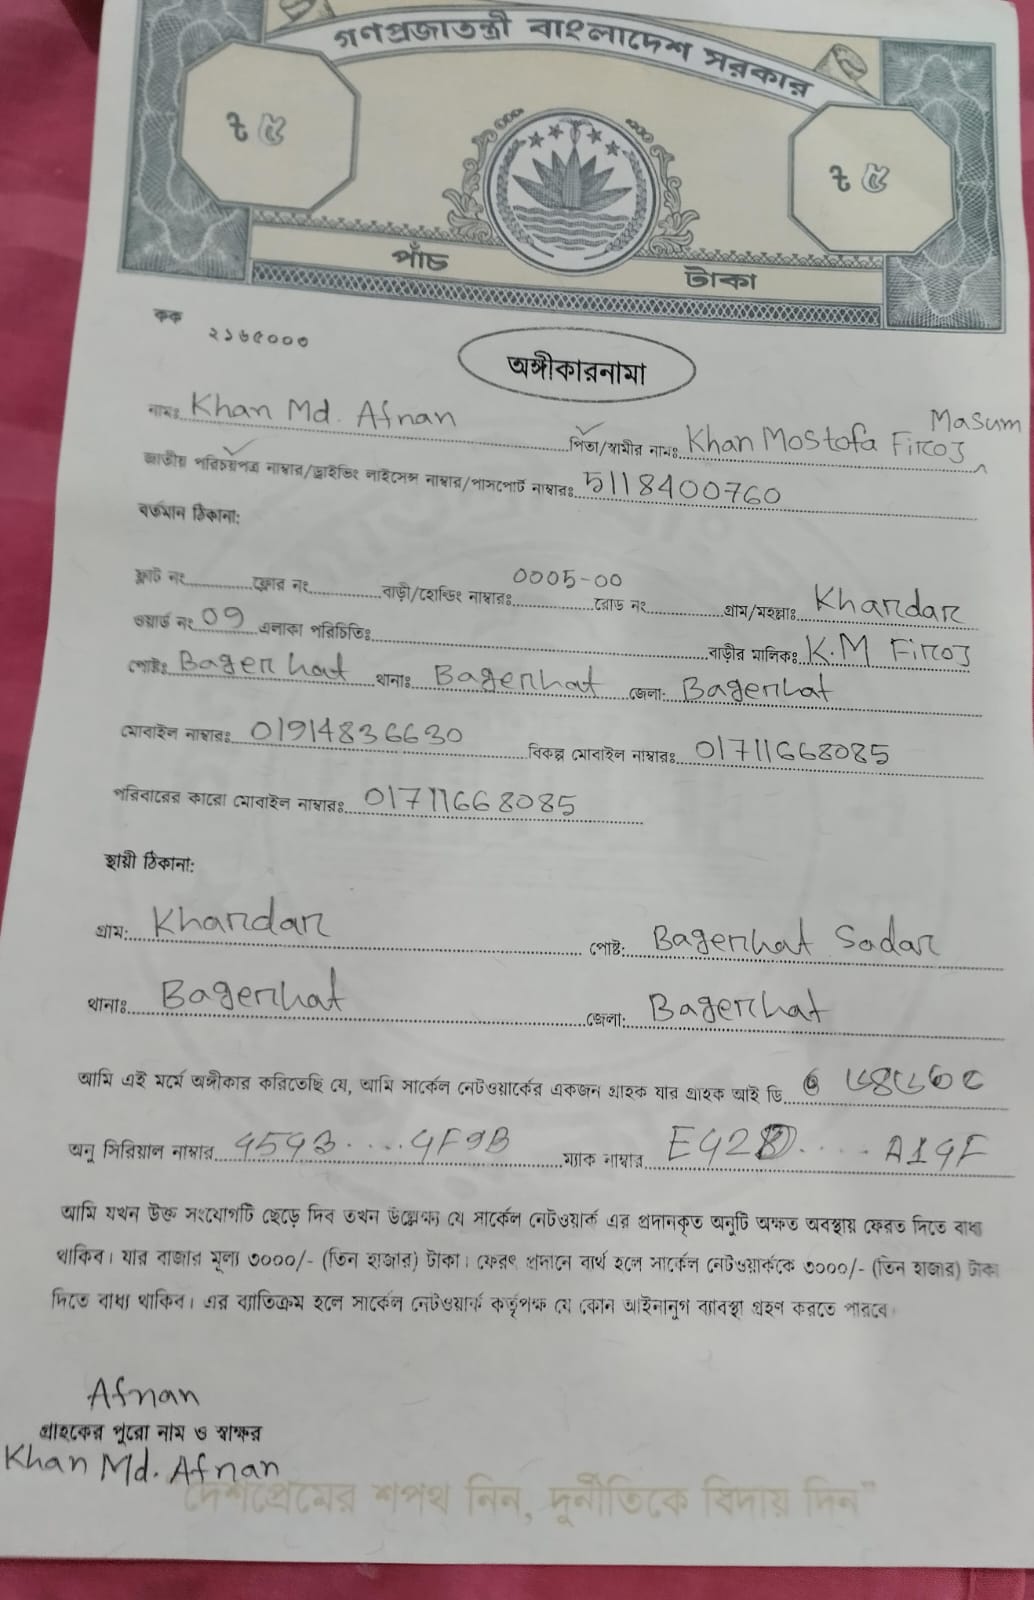 গণপ্রজাতন্ত্রী বাংলাদেশ সরকার
৳ ৫
৳ ৫
পাঁচ টাকা
কক ২১৬৫০০০
অঙ্গীকারনামা
নামঃ Khan Md. Afnan পিতা/স্বামীর নামঃ Khan Mostofa Firoj Masum
জাতীয় পরিচয়পত্র নাম্বার/ড্রাইভিং লাইসেন্স নাম্বার/পাসপোর্ট নাম্বারঃ 5118400760
বর্তমান ঠিকানা:
ফ্লাট নং ফ্লোর নং বাড়ী/হোল্ডিং নাম্বারঃ 0005-00 রোড নং গ্রাম/মহল্লাঃ Khardar
ওয়ার্ড নং 09 এলাকা পরিচিতিঃ বাড়ীর মালিকঃ K.M Firoj
পোষ্টঃ Bagerhat থানাঃ Bagerhat জেলা: Bagerhat
মোবাইল নাম্বারঃ 01914836630 বিকল্প মোবাইল নাম্বারঃ 01711668085
পরিবারের কারো মোবাইল নাম্বারঃ 01711668085
স্থায়ী ঠিকানা:
গ্রাম: Khardar পোষ্ট: Bagerhat Sadar
থানাঃ Bagerhat জেলা: Bagerhat
আমি এই মর্মে অঙ্গীকার করিতেছি যে, আমি সার্কেল নেটওয়ার্কের একজন গ্রাহক যার গ্রাহক আই ডি
অনু সিরিয়াল নাম্বার 4543....4F9B ম্যাক নাম্বার A14F
আমি যখন উক্ত সংযোগটি ছেড়ে দিব তখন উল্লেক্ষ্য যে সার্কেল নেটওয়ার্ক এর প্রদানকৃত অনুটি অক্ষত অবস্থায় ফেরত দিতে বাধ্য
থাকিব। যার বাজার মূল্য ৩০০০/- (তিন হাজার) টাকা। ফেরৎ প্রদানে ব্যর্থ হলে সার্কেল নেটওয়ার্ককে ৩০০০/- (তিন হাজার) টাকা
দিতে বাধ্য থাকিব। এর ব্যাতিক্রম হলে সার্কেল নেটওয়ার্ক কর্তৃপক্ষ যে কোন আইনানুগ ব্যাবস্থা গ্রহণ করতে পারবে।
Afnan
গ্রাহকের পুরো নাম ও স্বাক্ষর
Khan Md. Afnan
"দেশপ্রেমের শপথ নিন, দুর্নীতিকে বিদায় দিন"